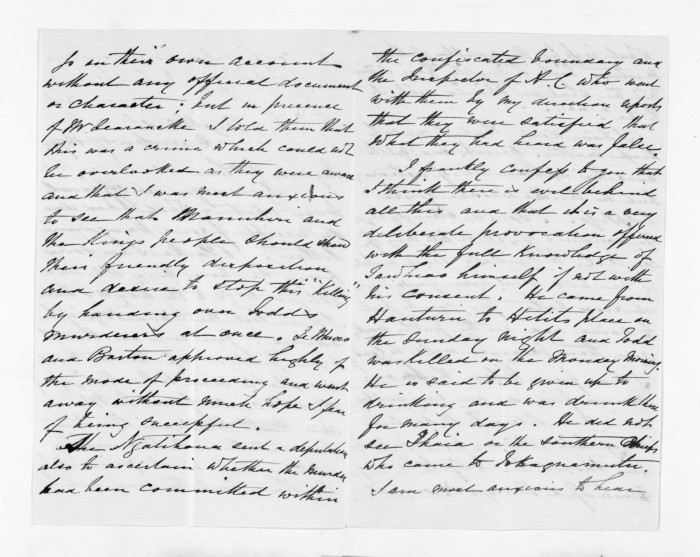 go on their own account
without any official document
or character; but in presence
of Mr Searancke I told them that
this was a crime which could not
be overlooked as they were aware
and that I was most anxious
to see that Manuhiri and
the Kings people should show
their friendly disposition
and desire to stop this "Killing"
by handing over Todds
murderers at once.
and Barton approved highly of
the mode of proceeding and went
away without much hope I fear
of being successful.
The Ngatihaua sent a deputation
also to ascertain whether the murder
had been committed within
the confiscated boundary and
the Inspector of A.C. who went
with them by my direction reports
that they were satisfied that
what they had heard was false
I frankly confess to you that
I think there is evil behind
all this and that it is a very
deliberate provocation offered
with the full knowledge of
Tawhiao himself if not with
his consent. He came from
Hauturu to place on
the Sunday night and Todd
was killed on the Monday morning.
He is said to be given up to
drinking and was drunk there
for many days. He did not
see Ihaia or the Southern Chiefs
who came to Tokangamutu.
I am most anxious to hear